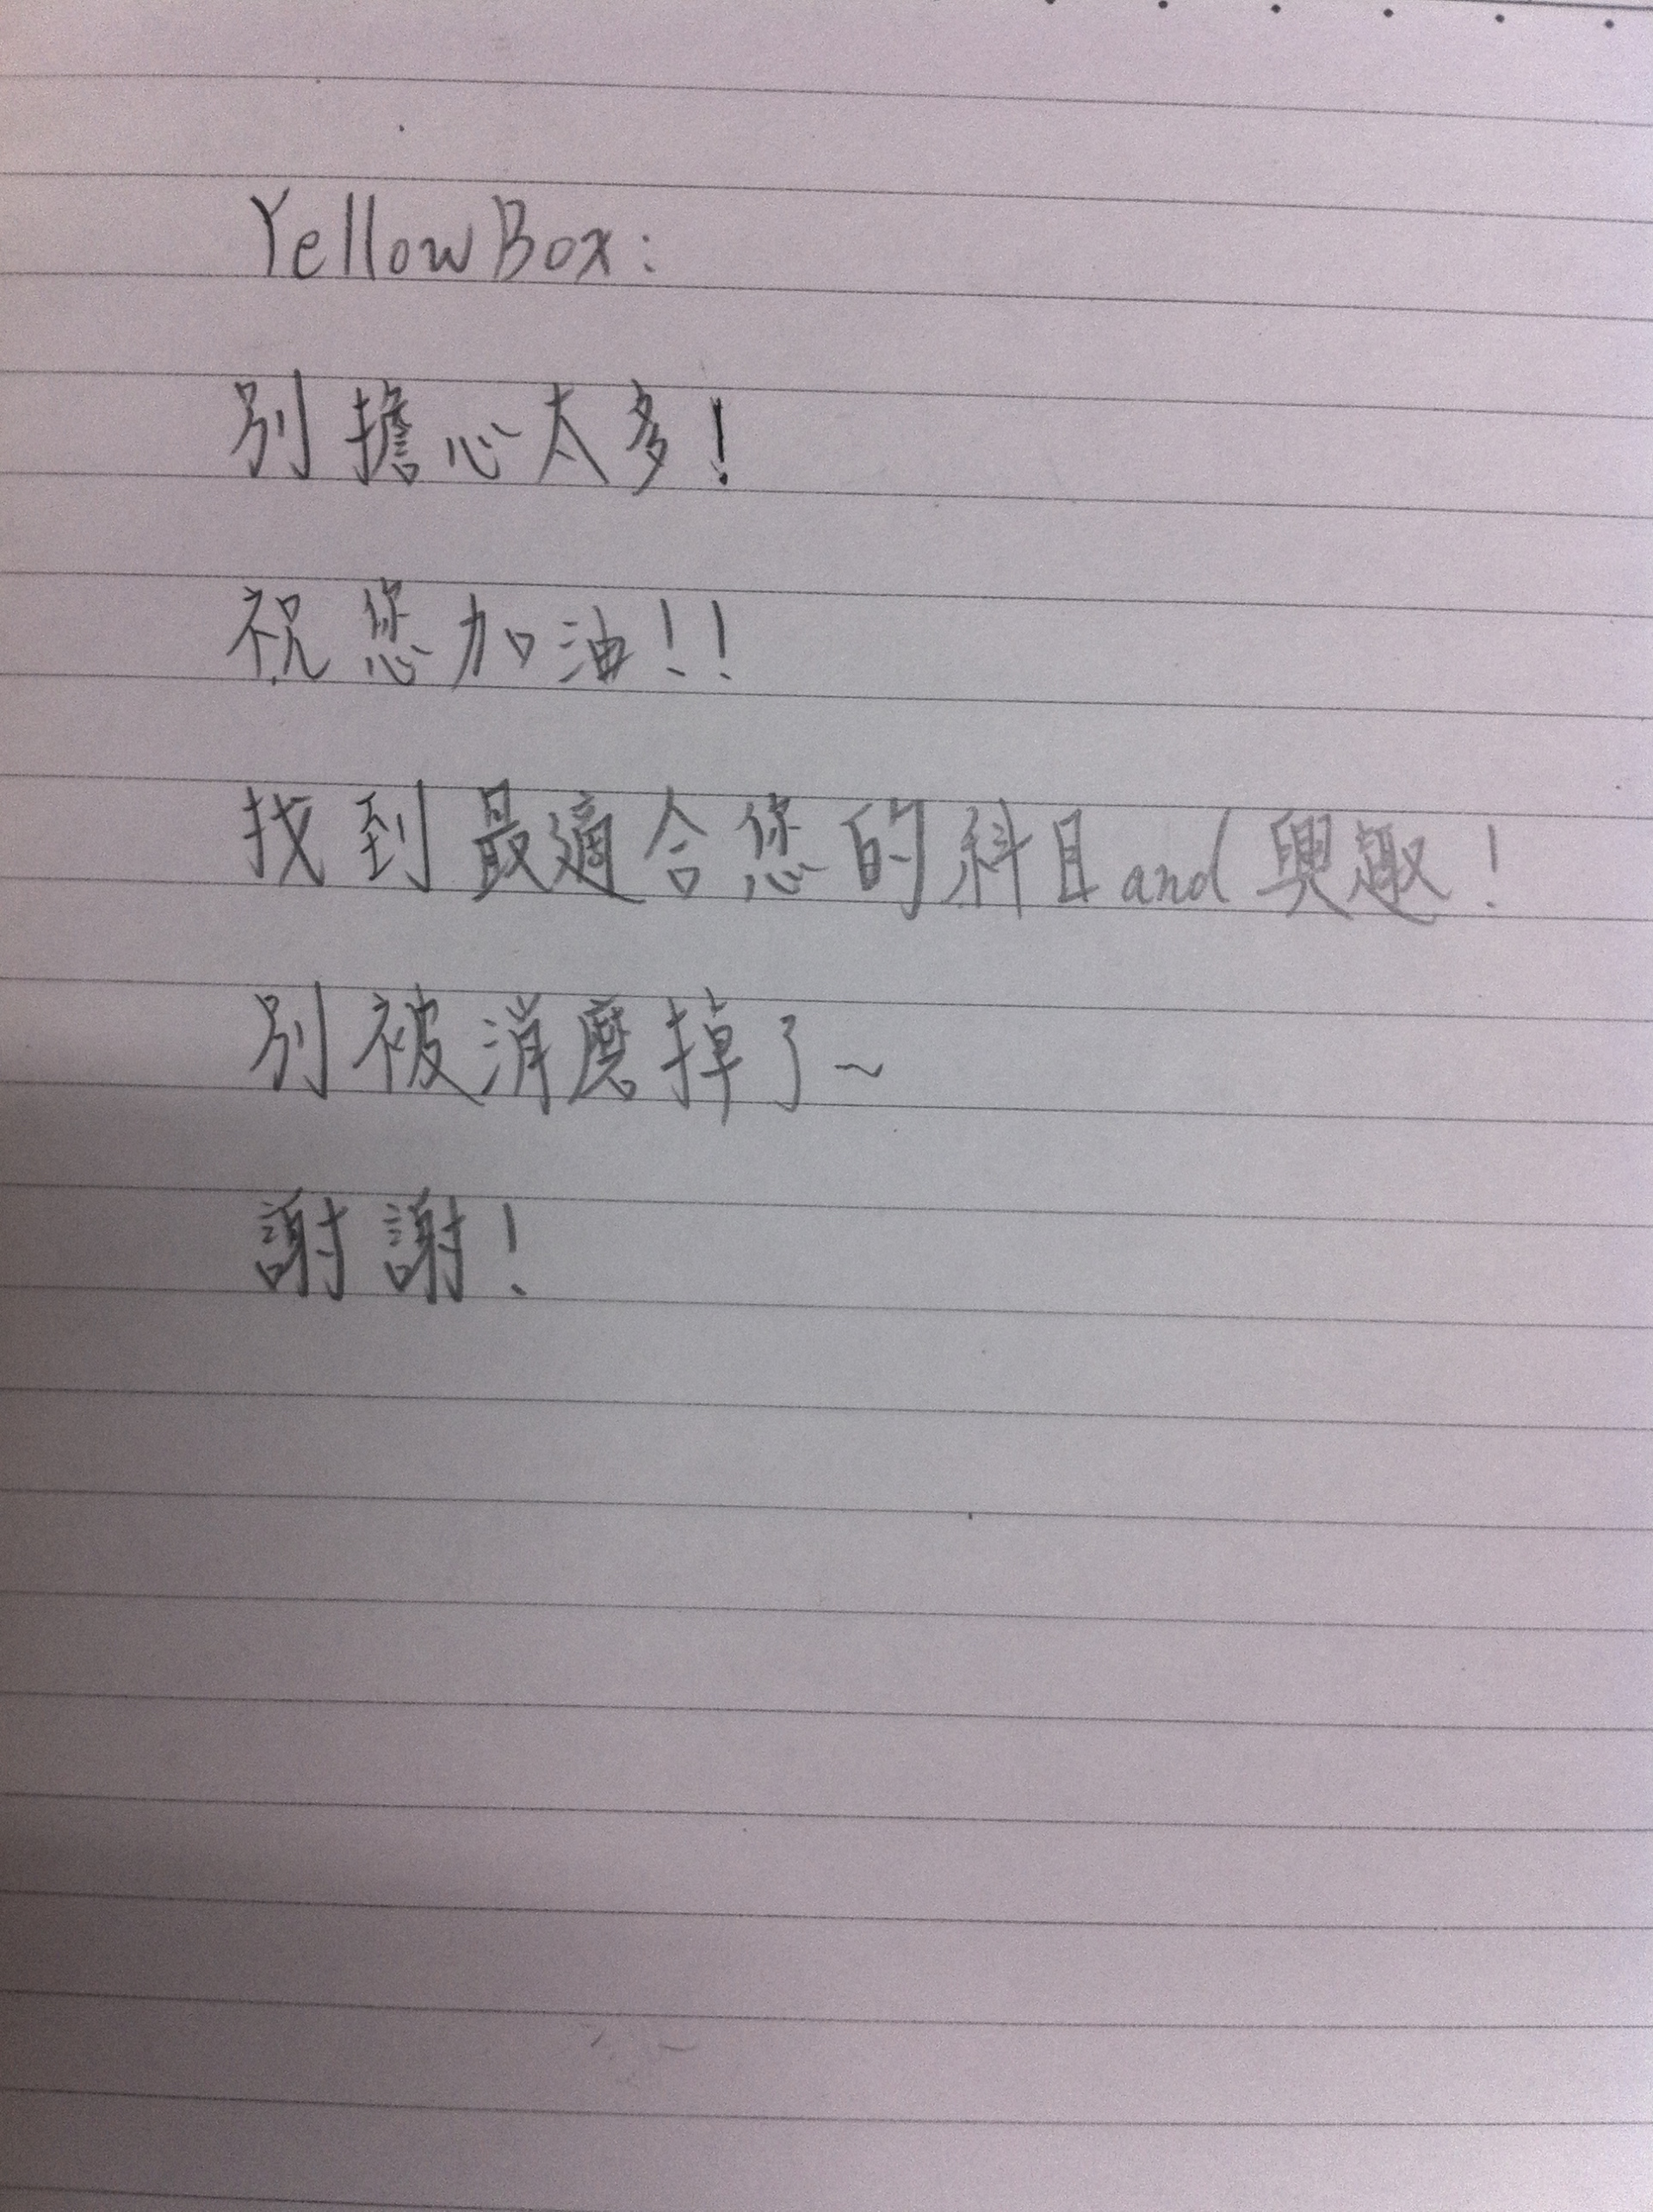 Yellow Box:
別擔心太多!
祝您加油!!
找到最適合您的科目and興趣!
別被消磨掉了~
謝謝!